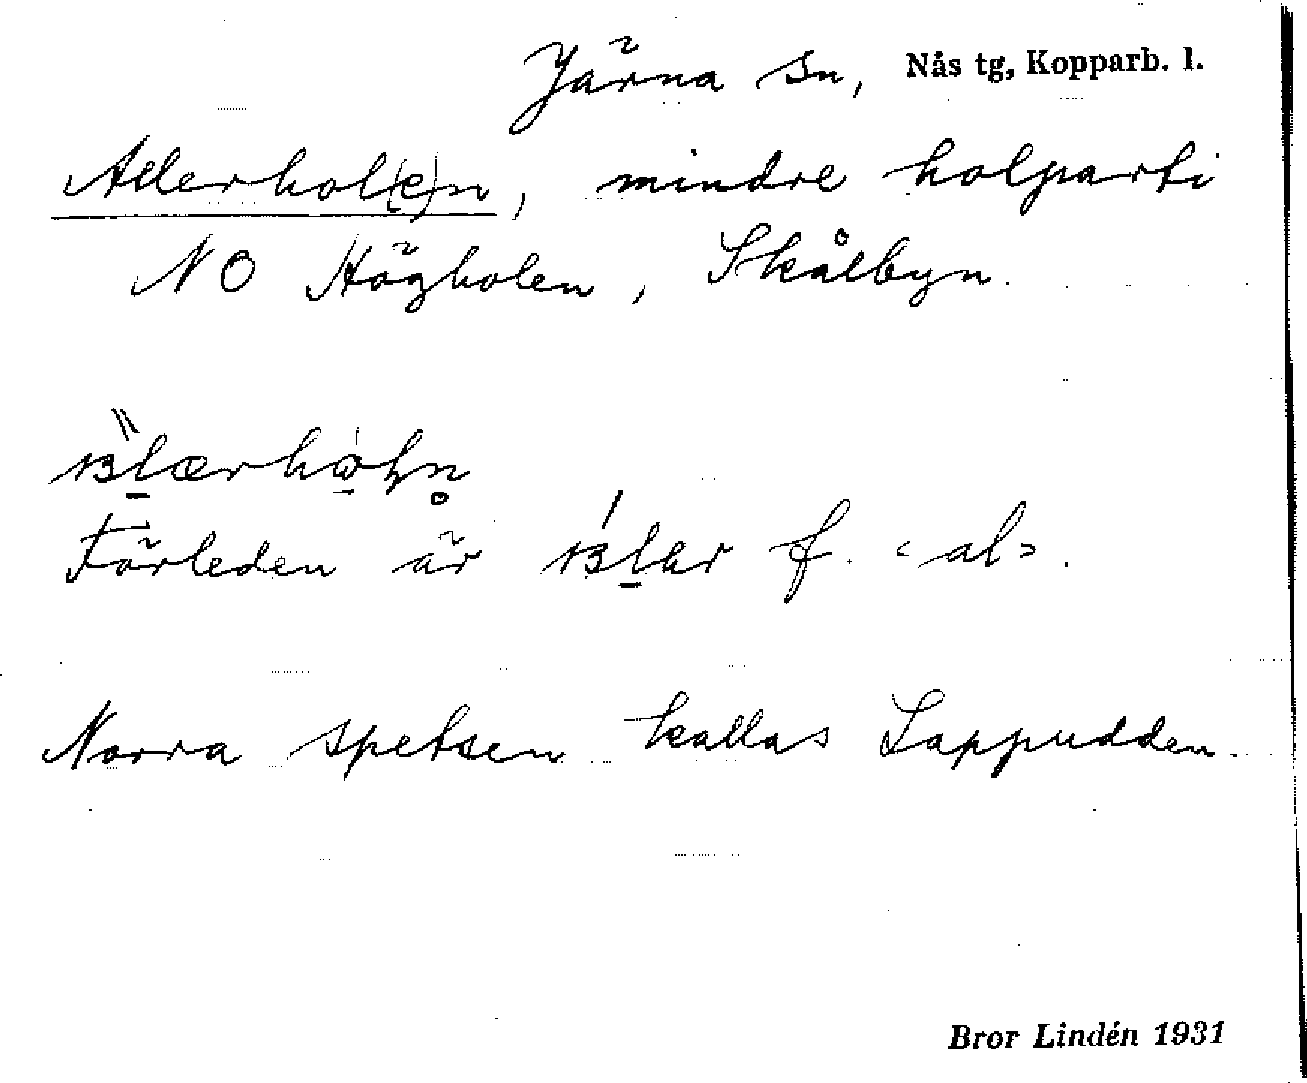 Järna sn, Nås tg, Kopparb. l.
Allerhol(e)n, mindre holparti
NO Högholen, Skålbyn.
Förleden är f. <al>.
Norra spetsen kallas Lappudden.
Bror Lindén 1931